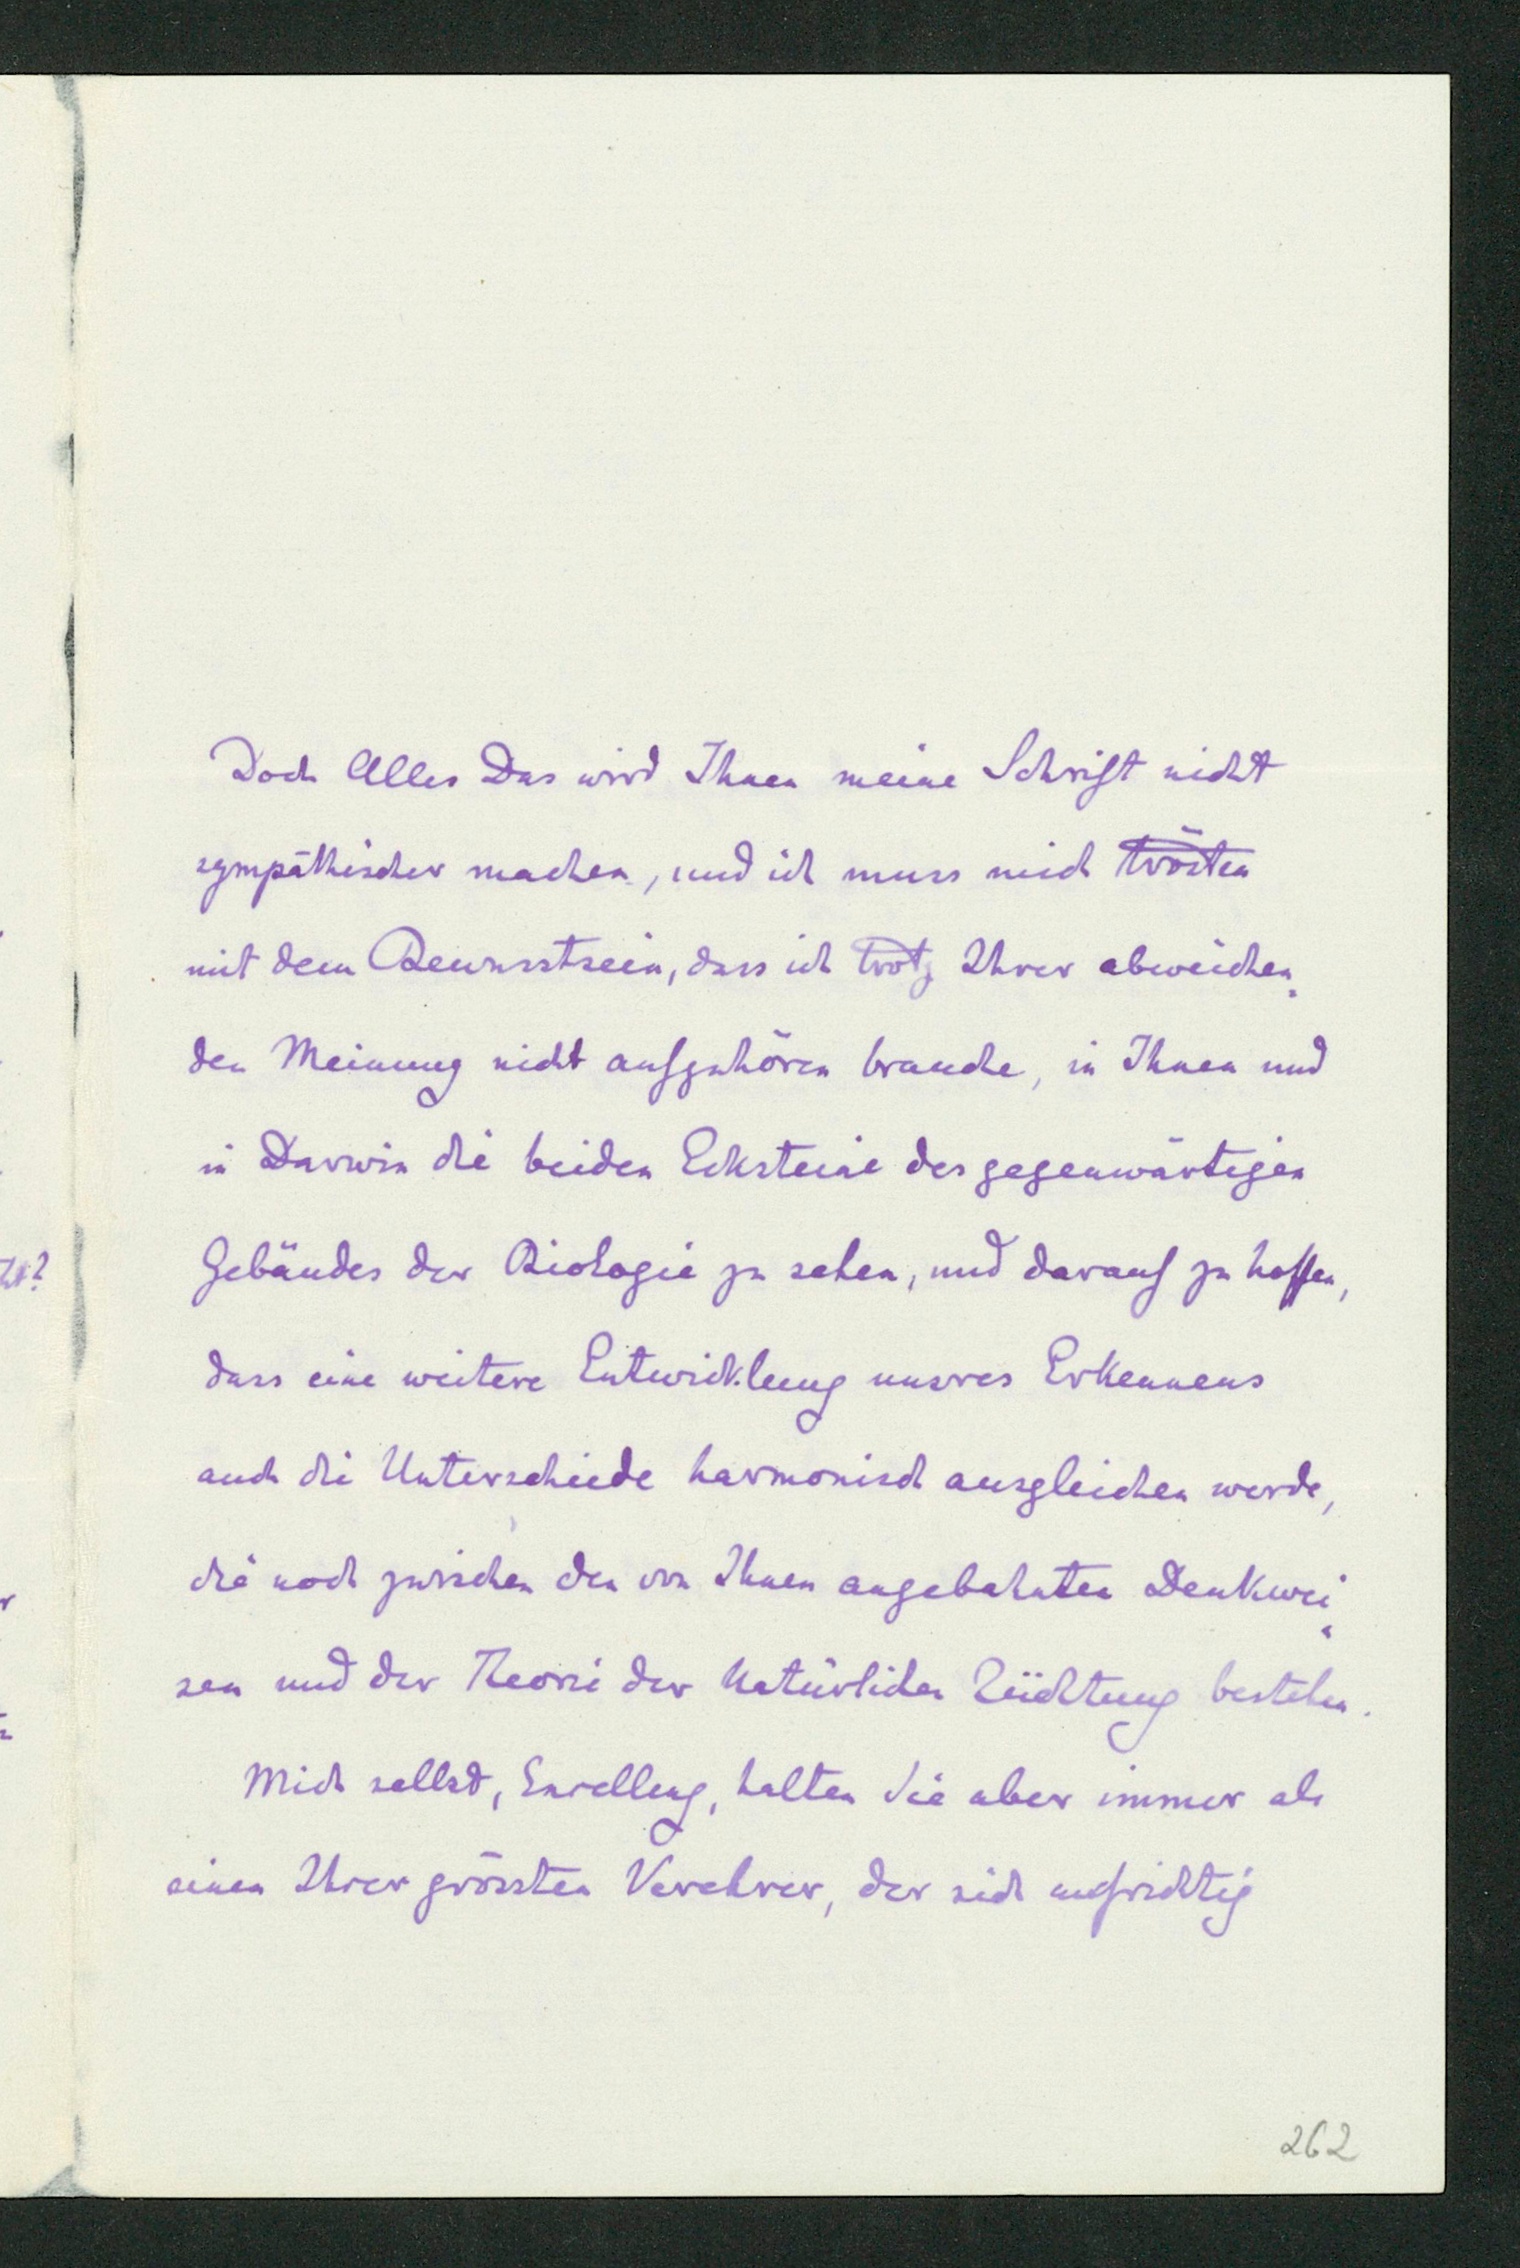 Doch Alles Das wird Ihnen meine Schrift nicht
sympathischer machen, und ich muss mich trösten
mit dem Bewusstsein, dass ich trotz Ihrer abweichen„
den Meinung nicht aufzuhören brauche, in Ihnen und
in Darwin die beiden Ecksteine des gegenwärtigen
Gebäudes der Biologie zu sehen, und darauf zu hoffen,
dass eine weitere Entwicklung unsres Erkennens
auch die Unterschiede harmonisch ausgleichen werde,
die noch zwischen den von Ihnen angebahnten Denkwei„
sen und der Theorie der Natürlichen Züchtung bestehen.
Mich selbst, halten Sie aber immer als
einen Ihrer grössten Verehrer, der sich aufrichtig
262